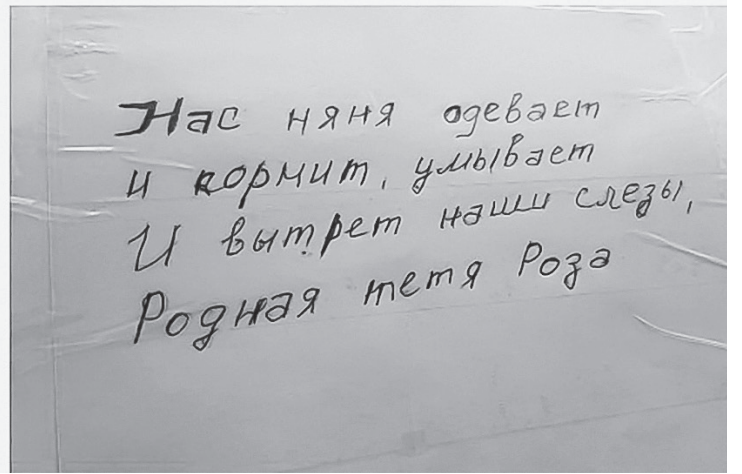 Нас няня одевает
и кормит, умывает
И вытрет наши слезы,
Родная тетя Роза